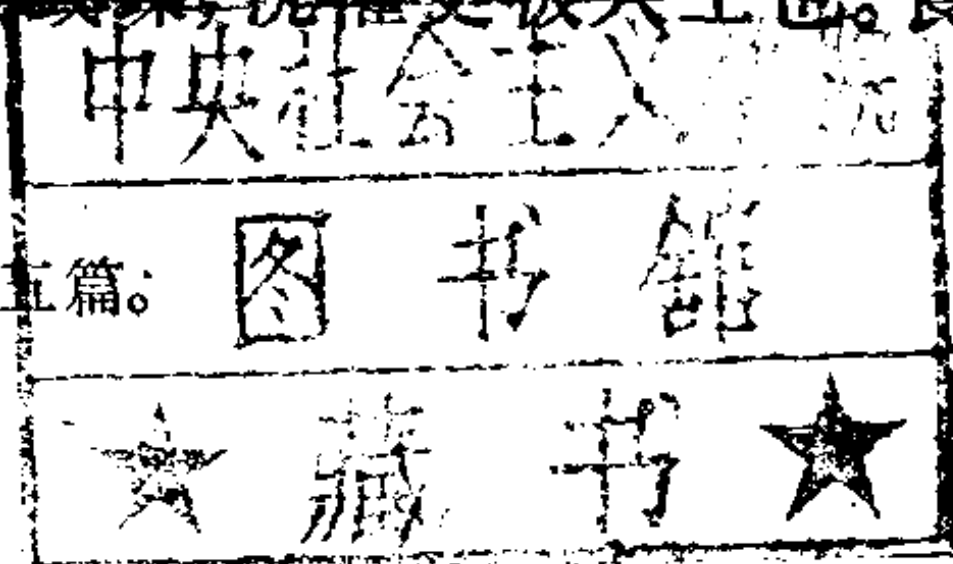 中央社会主义学院
五篇。
图书馆
★藏书★